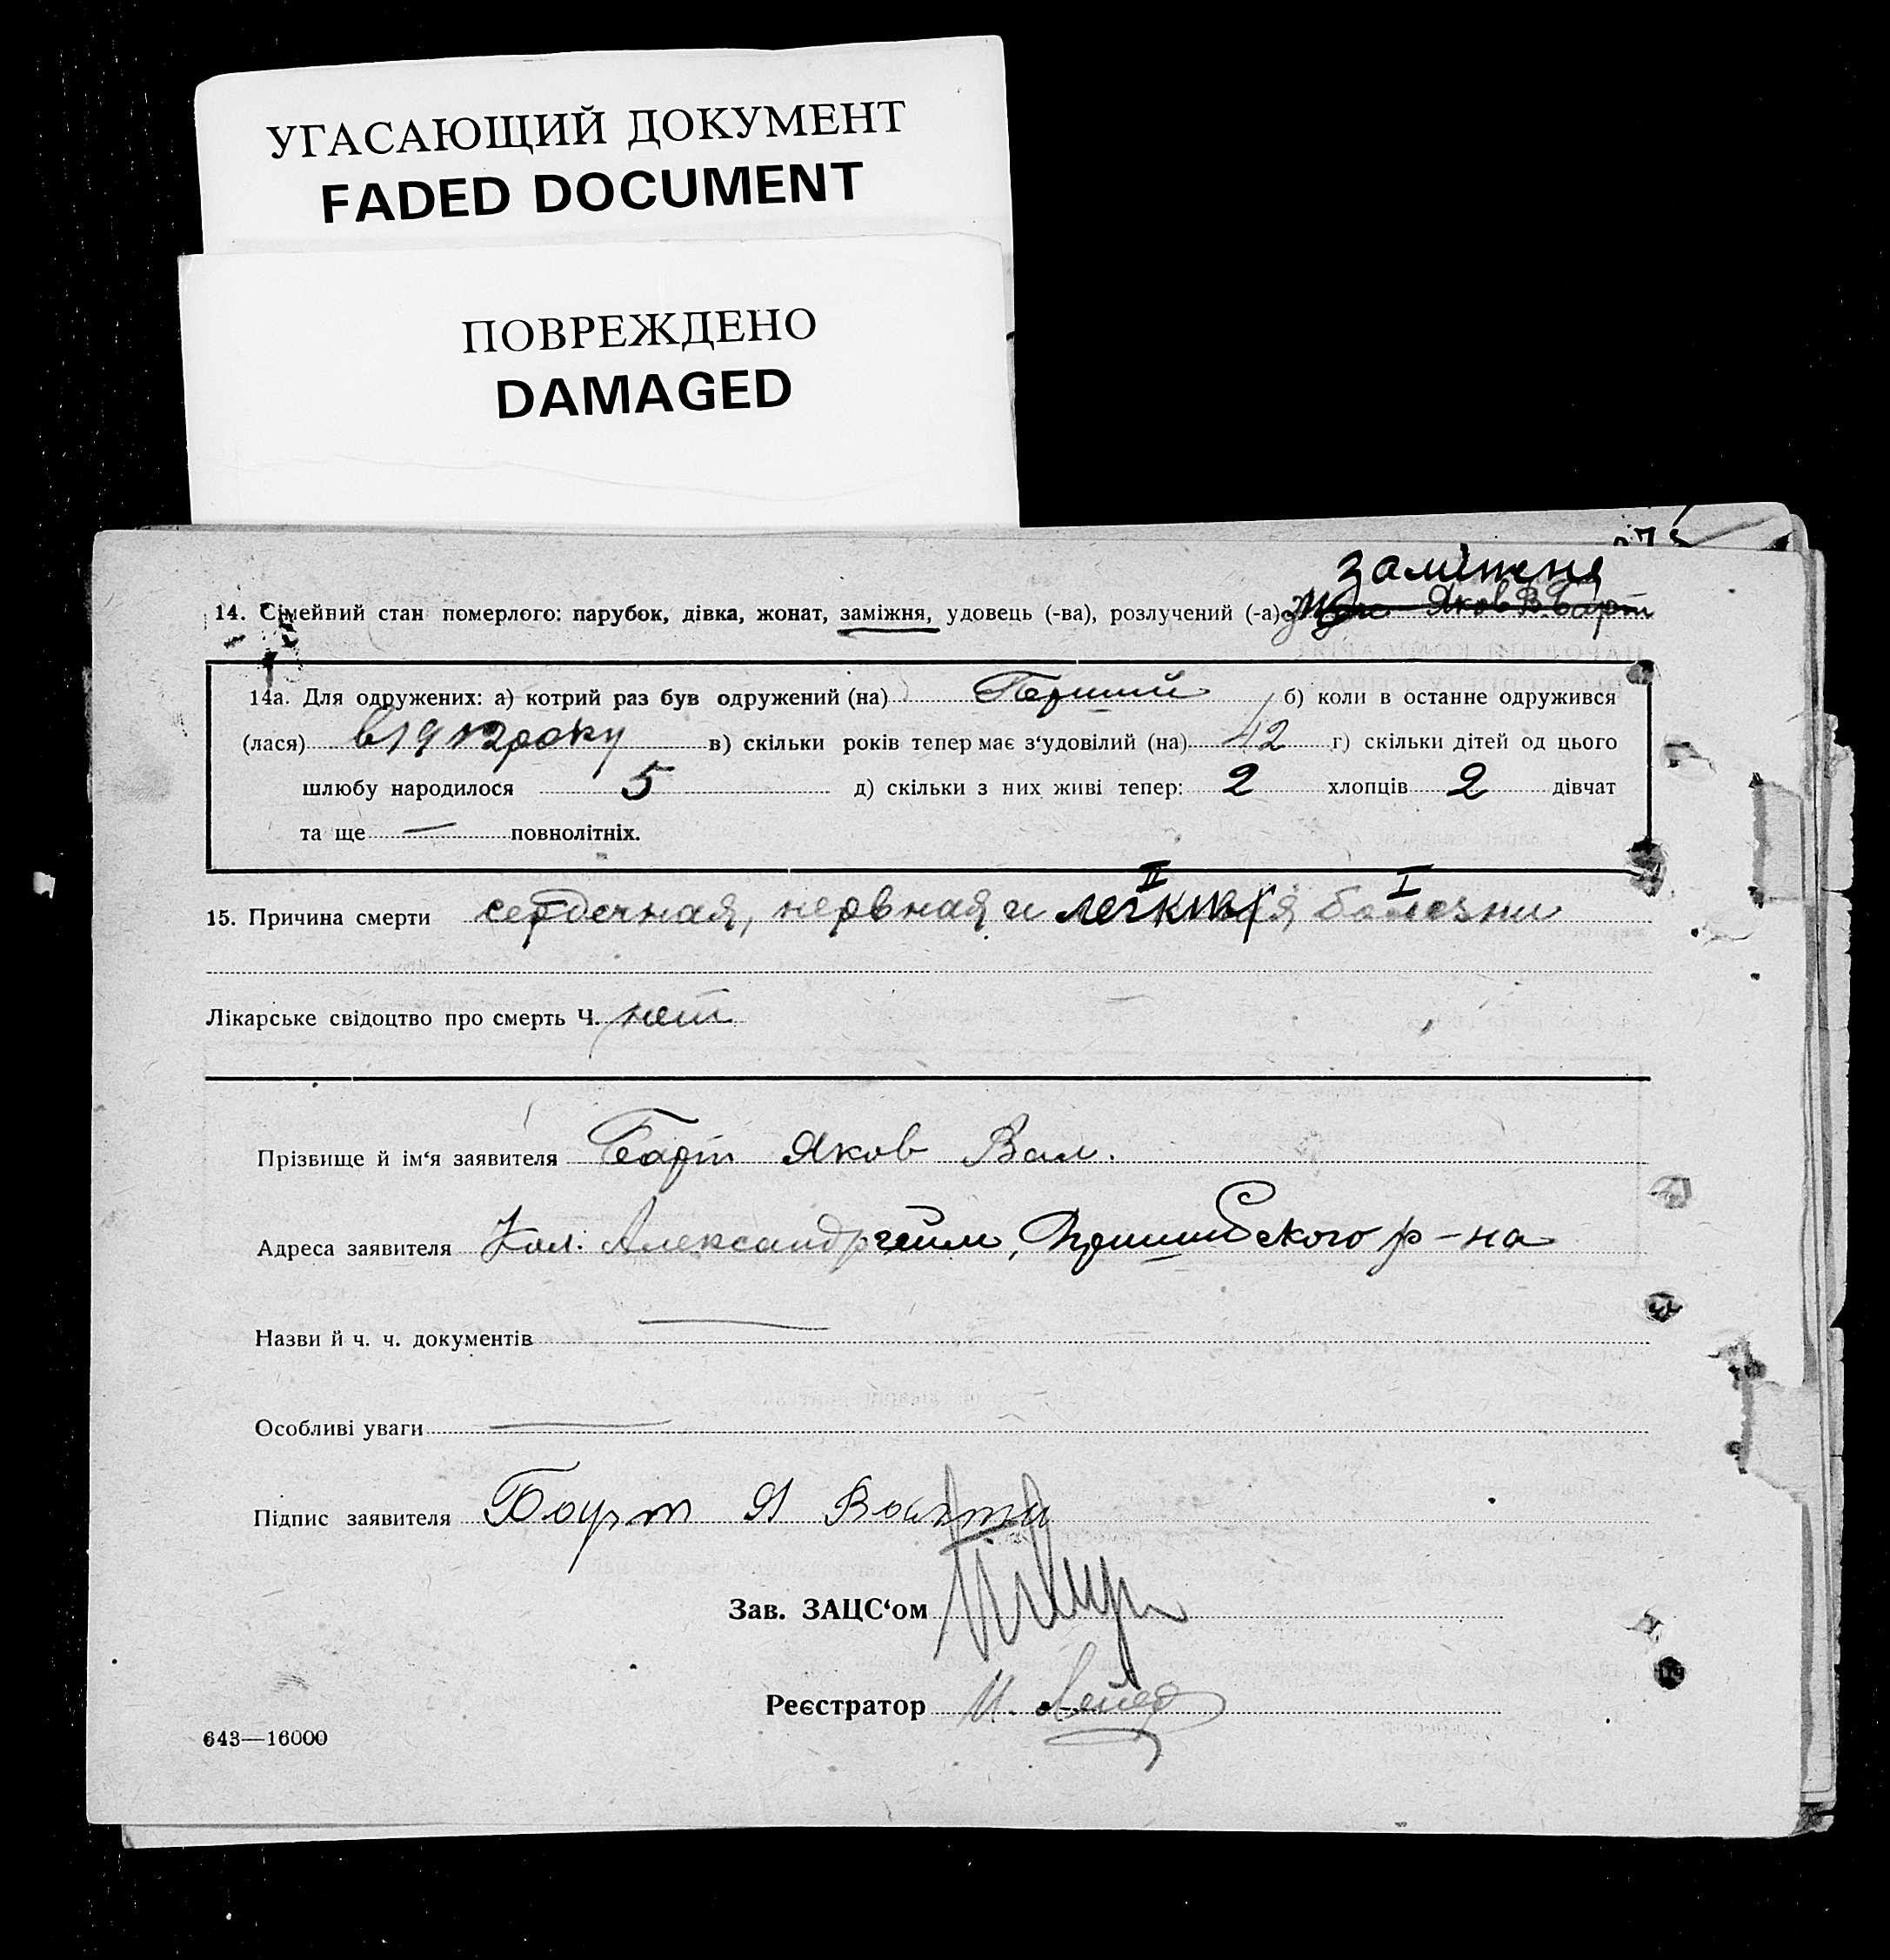 УГАСАЮЩИЙ ДОКУМЕНТ
FADED DOCUMENT
ПОВРЕЖДЕНО
DAMAGED
заміжня
14. Сімейний стан померлого: парубок, дівка, жонат, заміжня, удовець (-ва), розлучений (-а) Яков В. Барт
14а. Для одружених: а) котрий раз був одружений (на) Перший б) коли в останне одружився
(лася) в 1912 року в) скільки років тепер має з‘удовілий (на) 42 г) скільки дітей од цього
шлюбу народилося 5 д) скільки з них живі тепер: 2 хлопців 2 дівчат
та ще — повнолітніх.
II I
15. Причина смерти сердечная, нервная и легкия болезни
Лікарське свідоцтво про смерть Ч. нет
Прізвище й ім‘я заявителя Барт Яков Вал.
Адреса заявителя Кол. Александргейм, Пришибского р-на
Назви й ч. ч. документів —
Особливі уваги —
Підпис заявителя Барт Я
Зав. ЗАЦС‘ом
Реєстратор И.
643—16000